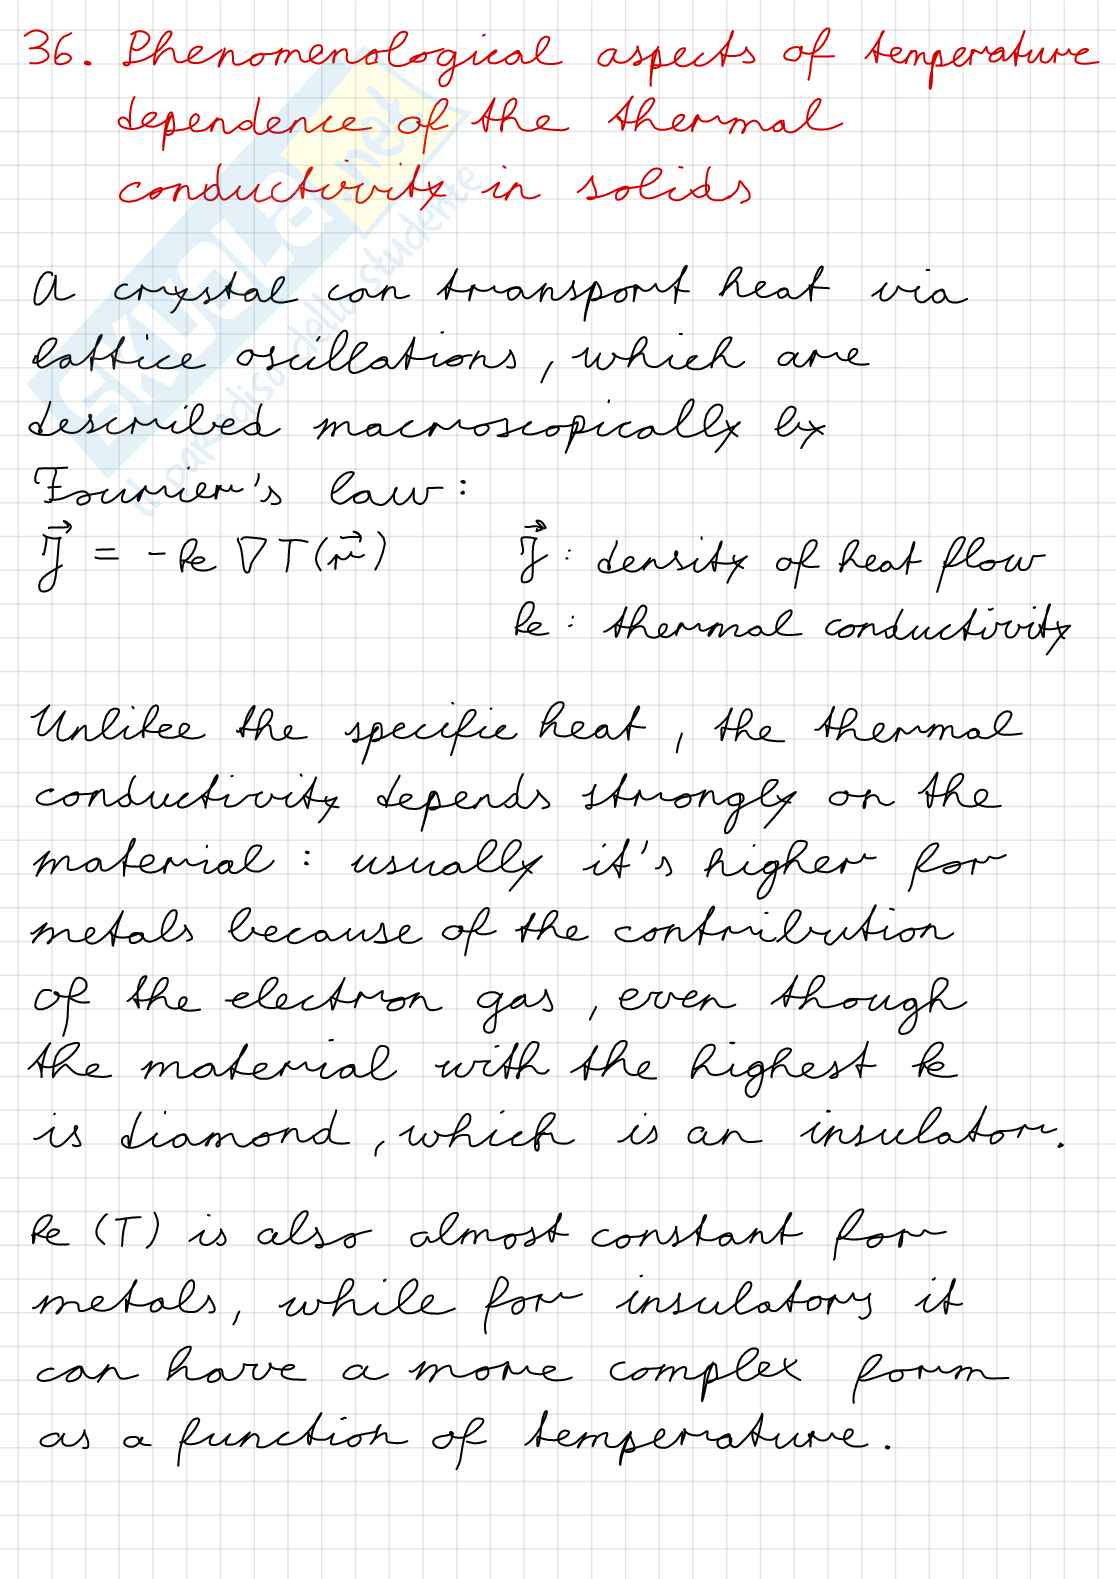 36. Phenomenological aspects of temperature
dependence of the thermal
conductivity in solids
A crystal can transport heat via
lattice oscillations, which are
described macroscopically by
Fourier's law:
J⃗ = -k ∇T(r⃗) J⃗: density of heat flow
k: thermal conductivity
Unlike the specific heat, the thermal
conductivity depends strongly on the
material: usually it's higher for
metals because of the contribution
of the electron gas, even though
the material with the highest k
is diamond, which is an insulator.
k(T) is also almost constant for
metals, while for insulators it
can have a more complex form
as a function of temperature.
SKUOLA.net
il paradiso dello studente